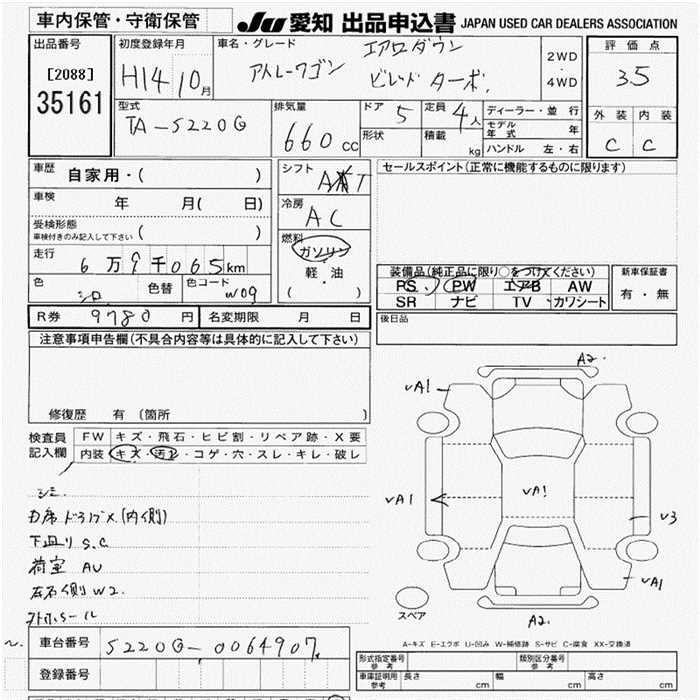 車内保管・守衛保管
JU 愛知 出品申込書 JAPAN USED CAR DEALERS ASSOCIATION
出品番号
[2088]
35161
初度登録年月
H14 10月
車名・グレード
アトレーワゴン
エアロダウン
ビレットターボ
2WD
・
4WD
評価点
3.5
外装 内装
C C
型式
TA-S220G
排気量
660cc
ドア 5
定員 4人
形状
積載 kg
ディーラー・並行
モデル年式 年
ハンドル 左・右
車歴 自家用・( )
車検 年 月( 日)
受検形態
車検付きのみ記入して下さい ( )
走行 6万9千065km
色 シロ 色替 色コード W09
シフト AT
冷房 AC
燃料
ガソリン
軽・油
( )
セールスポイント(正常に機能するものに限ります)
装備品(純正品に限り○をつけてください)
PS PW エアB AW
SR ナビ TV カワシート
新車保証書
有・無
後日品
R券 9780円 名変期限 月 日
注意事項申告欄(不具合内容等は具体的に記入して下さい)
修復歴 有 (箇所 )
検査員
記入欄
FW キズ・飛石・ヒビ割・リペア跡・X要
内装 キズ・汚レ・コゲ・穴・スレ・キレ・破レ
シミ
下廻り S.C
荷室 AU
左右側 W2
A2
vA1
vA1
vA1
v3
vA1
A2
スペア
A-キズ E-エクボ U-凹み W-補修跡 S-サビ C-腐食 XX-交換済
車台番号 S220G-0064907
登録番号
形式指定番号
参考
類別区分番号
参考
車庫証明用
参考
長さ cm
幅 cm
高さ cm